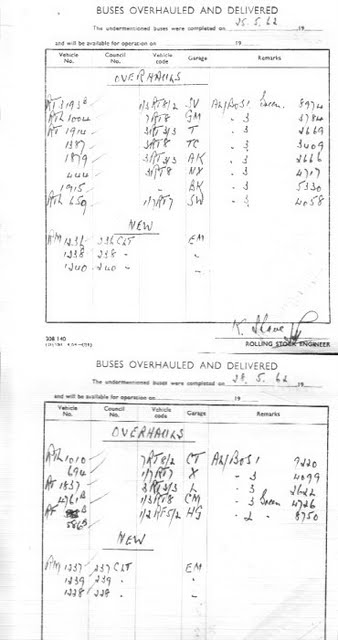 BUSES OVERHAULED AND DELIVERED
The undermentioned buses were completed on 25.5.62 19
and will be available for operation on 19
Vehicle No. Council No. Vehicle code Garage Remarks
OVERHAULS
1/3RT8/2 SV Green 8974
RTL 1004 7RT8 GM " 3 3784
RT 1914 3RT3/3 T " 3 2669
1387 3RT8 TC " 3 3409
1879 3RT3/3 AK " 3 2666
444 3RT8 NX " 3 4717
1915 " AK " 3 5330
RTL 659 1/7RT7 SW " 3 4058
NEW
RM 1236 236 CLT EM
1238 238 " "
1240 240 " "
308 140
ROLLING STOCK ENGINEER
BUSES OVERHAULED AND DELIVERED
The undermentioned buses were completed on 28.5.62 19
and will be available for operation on 19
Vehicle No. Council No. Vehicle code Garage Remarks
OVERHAULS
RTL 1010 7RT8/2 CT 9220
694 1/7RT7 X " 3 4099
RT 1837 3RT3/3 L " 3 2622
4761 1/3RT8 CM " 3 Green 4726
RF 1/2RF5/2 HG " 2 " 8750
NEW
RM 1237 237 CLT EM
1239 239 " "
1228 228 " "